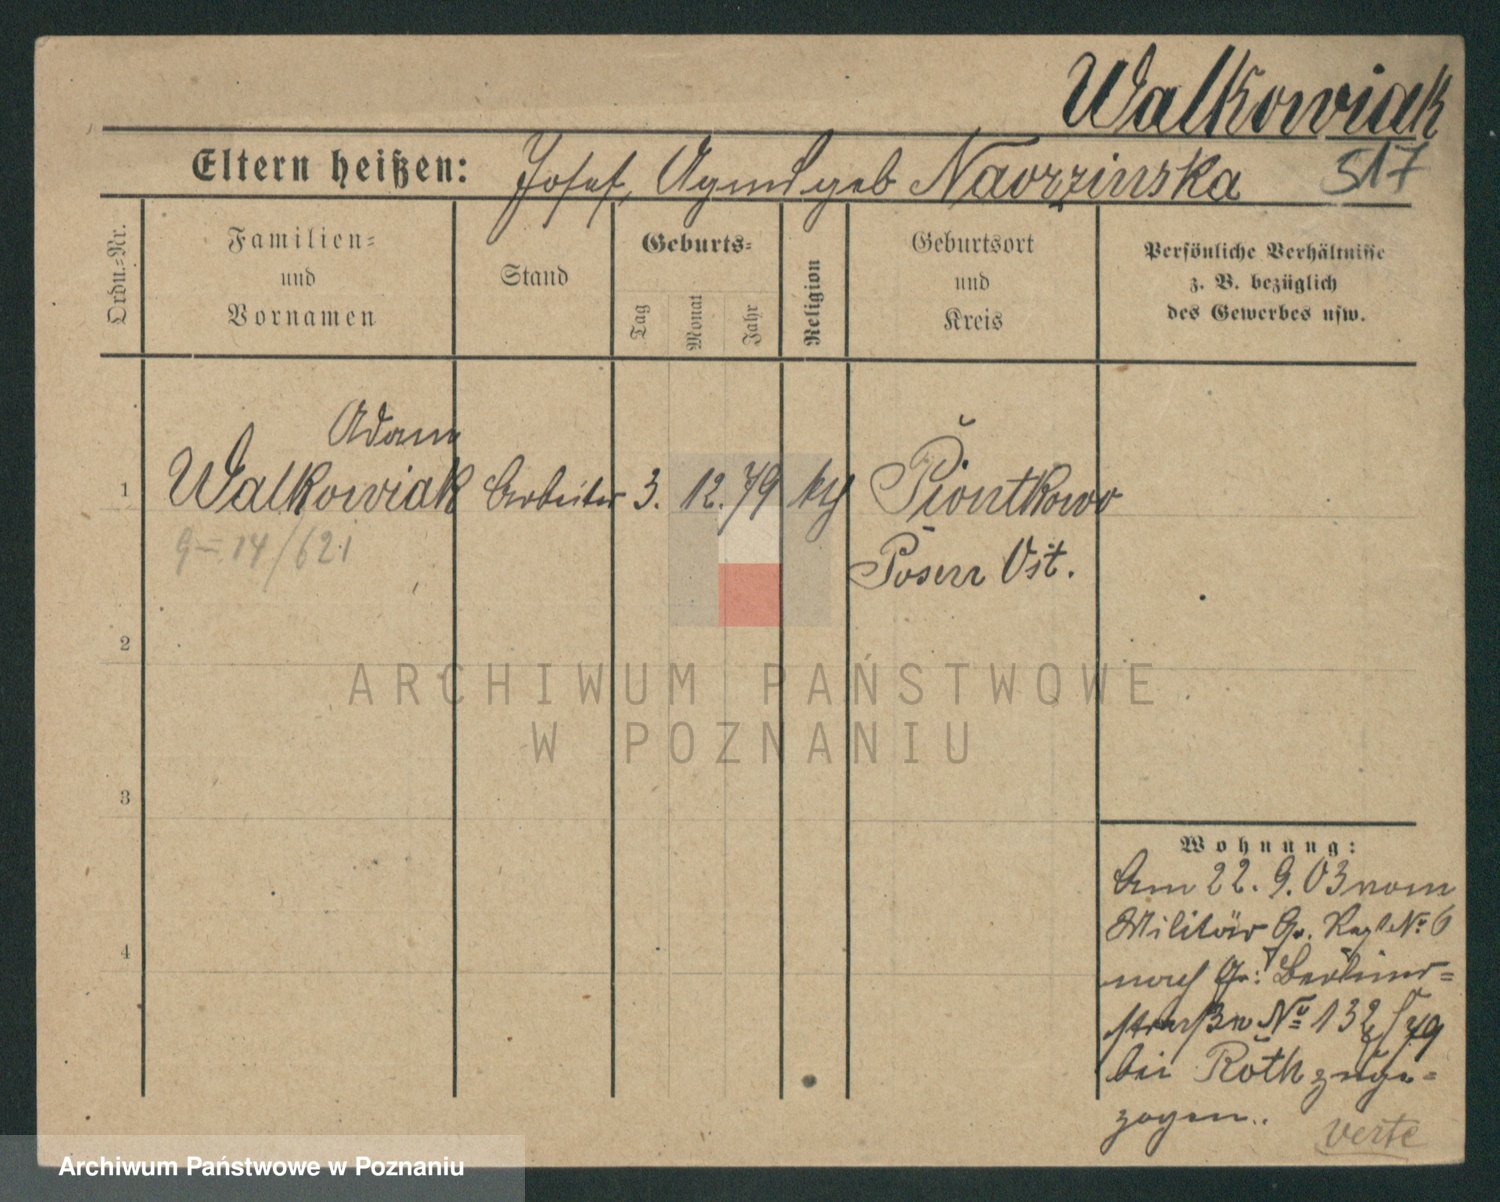 Walkowiak
Eltern heißen: Josef, Agnes geb Nawrzinska 517
Ordn.=Nr.
Familien=
und
Vornamen
Stand
Geburts=
Tag
Monat
Jahr
Religion
Geburtsort
und
Kreis
Persönliche Verhältnisse
z. B. bezüglich
des Gewerbes usw.
Adam
1 Walkowiak Arbeiter 3. 12. 79 kth Piontkowo
9=14/621
Posen Ost.
2
ARCHIWUM PAŃSTWOWE
W POZNANIU
3
Wohnung:
Am 22. 9. 03 vom
Militär Gr. Regt № 6
4
nach Gr: Berliner=
straße № 132
bei Roth zuge=
zogen.
verte
Archiwum Państwowe w Poznaniu